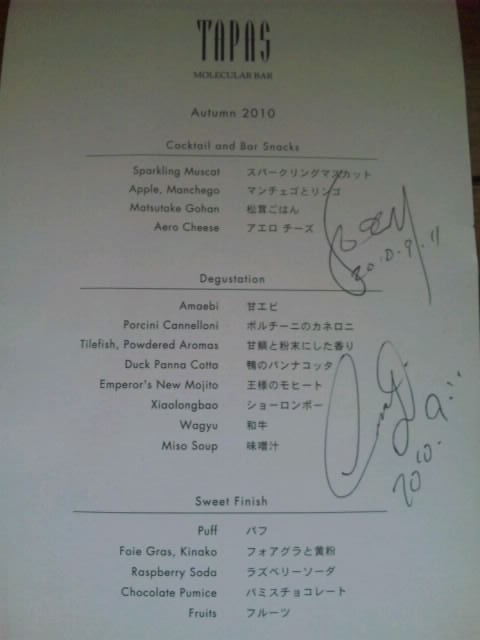 TAPAS
MOLECULAR BAR
Autumn 2010
Cocktail and Bar Snacks
Sparkling Muscat スパークリングマスカット
Apple, Manchego マンチェゴとリンゴ
Matsutake Gohan 松茸ごはん
Aero Cheese アエロ チーズ
2010.9.11
Degustation
Amaebi 甘エビ
Porcini Cannelloni ポルチーニのカネロニ
Tilefish, Powdered Aromas 甘鯛と粉末にした香り
Duck Panna Cotta 鴨のパンナコッタ
Emperor's New Mojito 王様のモヒート
Xiaolongbao ショーロンポー
Wagyu 和牛
Miso Soup 味噌汁
2010.9.11
Sweet Finish
Puff パフ
Foie Gras, Kinako フォアグラと黄粉
Raspberry Soda ラズベリーソーダ
Chocolate Pumice パミスチョコレート
Fruits フルーツ